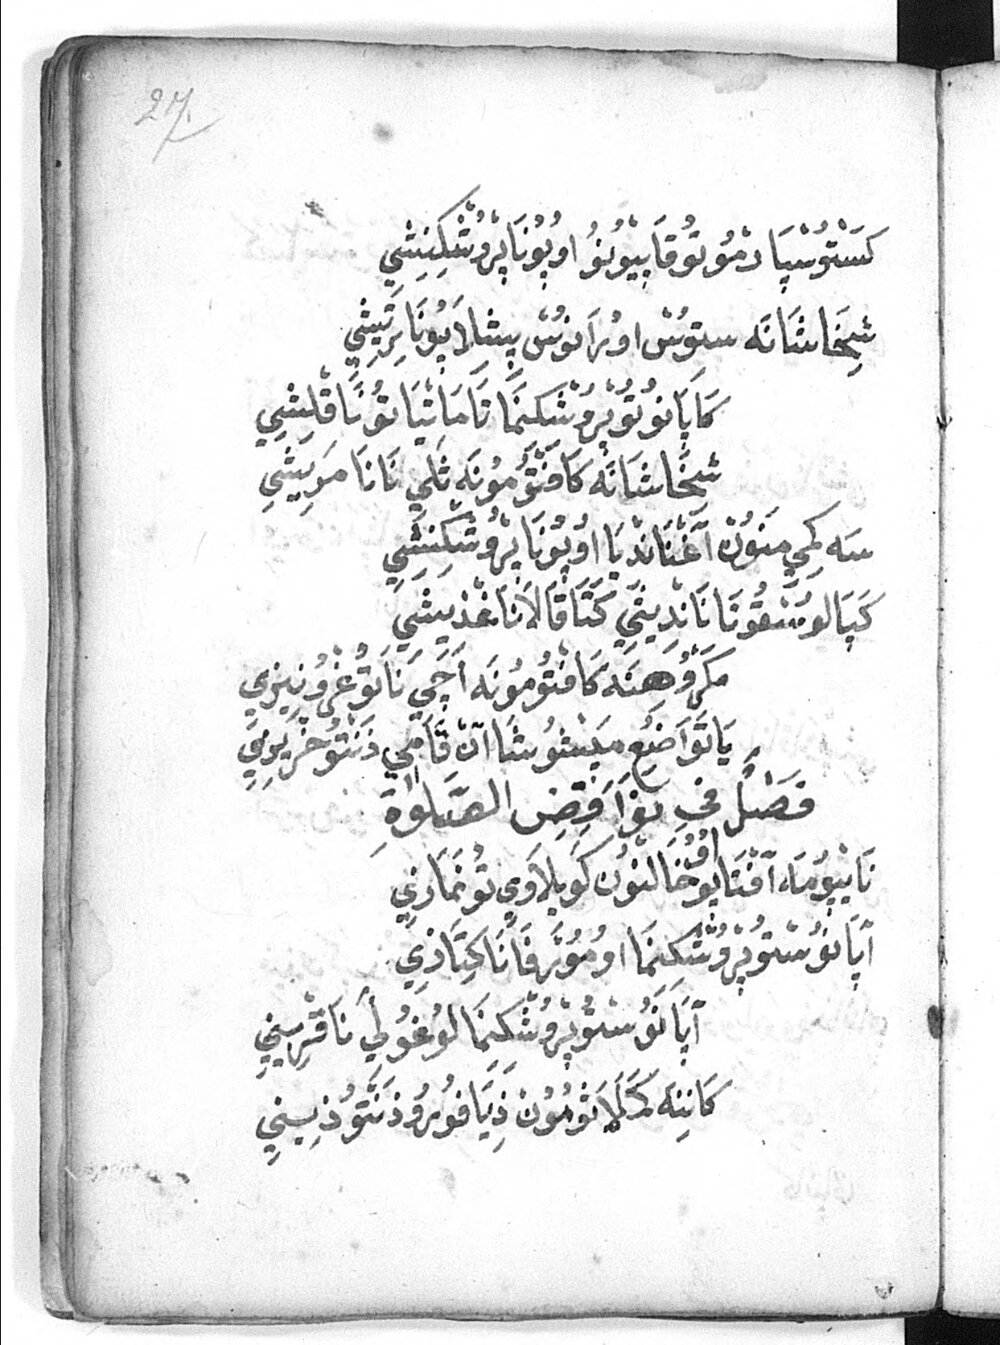 27
كَسَتُوسْپَا دمُوتُوقَاپيُونُو اوپُونَا پْرُوشْكِنِشِي
شِخَاشَانَه ستوسْ اوُرَانوسْ پِشلَاپُونَا پَرتِيشِي
كَاپَانوتُو پْرُوشكِنمَا تَاحَاشْيَاتُو نَاقْلِشِي
شِخَاشَانَه كَافتُومُونَه ثلِي نَانَا مَرپِشِي
سَه كِمِي مَنوُنْ آغْنَانْديَا اوُپونَا پْرُوشكِنشِي
كَپَالوسَتقُونَا نَانْدِيشِي كَتَاقَالَا نَاغذِيشِي
مَكرُوهِنَه كَافتُومُونَه اَچَمِي نَاتُو غرُونِيزِي
يَاتَوَاضُع مِينشُوشَا انْ قَامِي ذَنتُو خرِيزِي
فَصْلٌ فِي نَوَاقِضِ الصَّلٰوةِ
نَاپيُومَاء آفتَا يُوخَالنُونْ كَوپلَاوِي تُونمَازِي
آپَانوُ ستُو پْرُوشكِنمَا اوُمُوتَرفَا نَا كِتَاذِي
آپَانوُ ستُو پْرُوشكِنمَا لوُغُولِي نَا قْرسِنِي
كَانِنَه مَكَلَا ثوُمُونْ ذِيَافُورُو ذَنتُو ذِيسِنِي